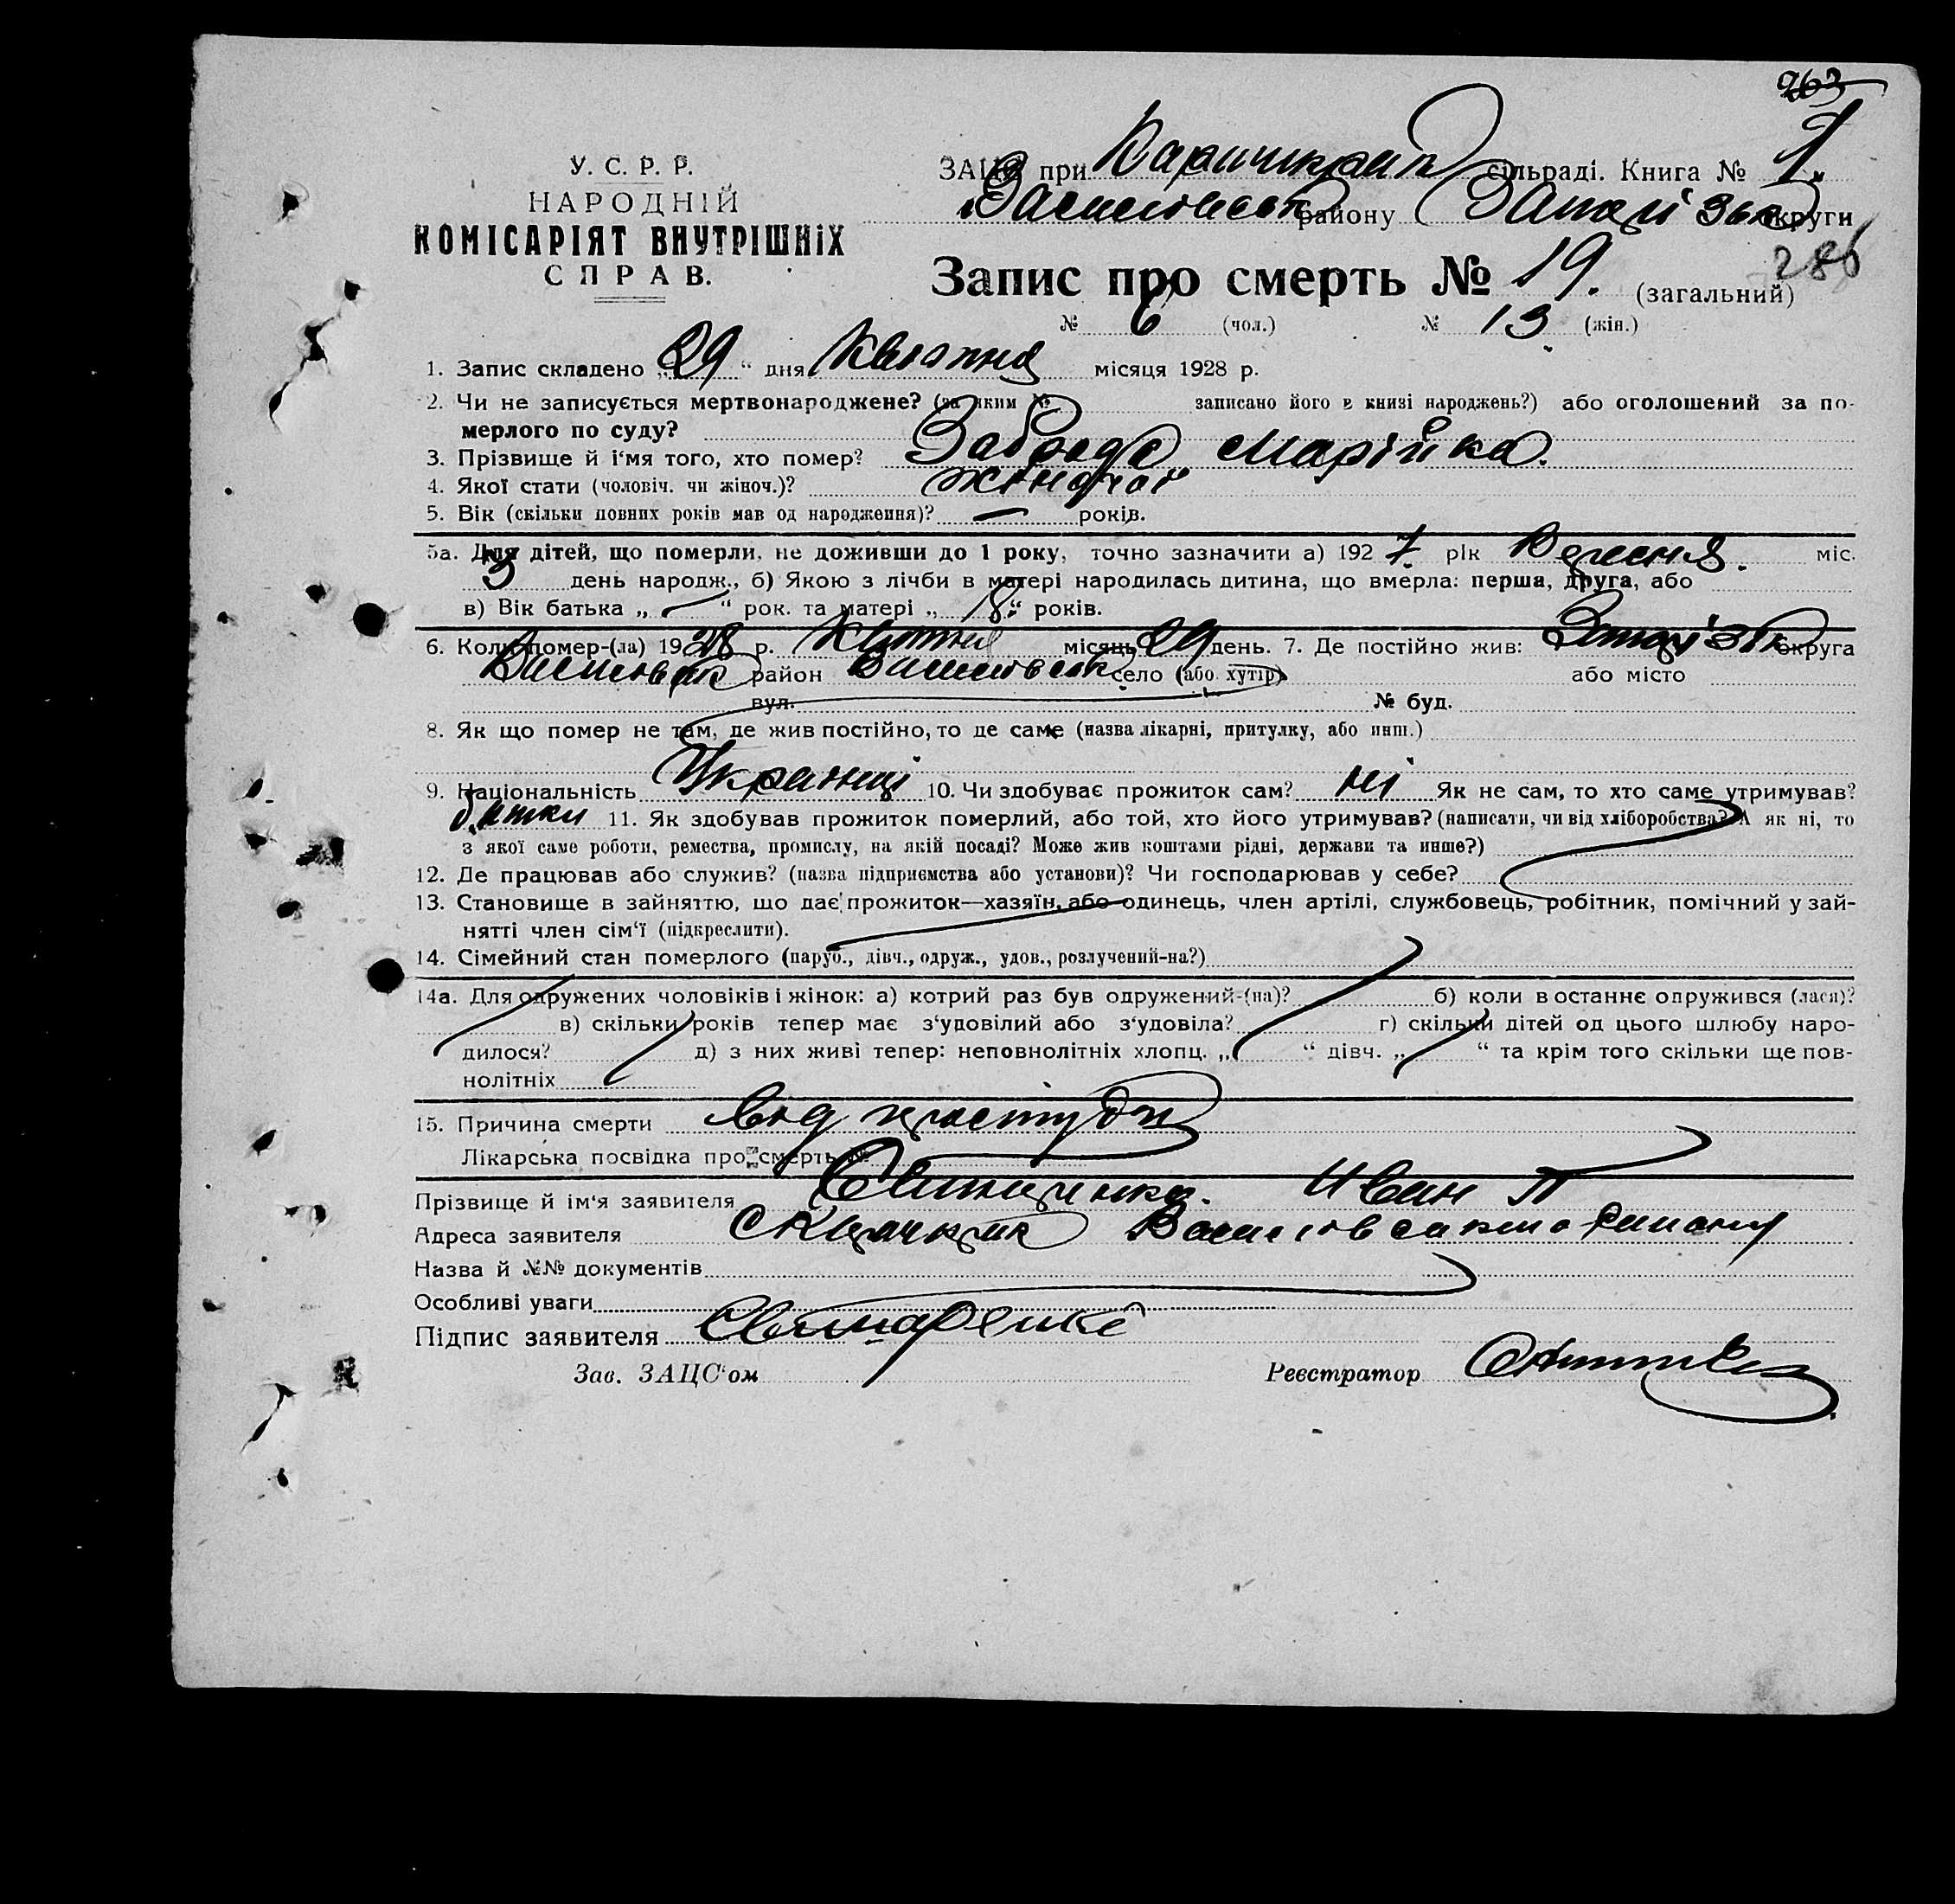 263
У. С. Р. Р.
НАРОДНІЙ
КОМІСАРІЯТ ВНУТРІШНІХ
СПРАВ.
ЗАЦС при сільраді. Книга № 1.
району округи
286
Запис про смерть № 19. (загальний)
№ 6 (чол.) № 13 (жін.)
1. Запис складено „29“ дня Квітня місяця 1928 р.
2. Чи не записується мертвонароджене? (за яким № записано його в книзі народжень?) або оголошений за по-
мерлого по суду?
3. Прізвище й і'мя того, хто помер? Марійка.
4. Якої стати (чоловіч. чи жіноч.)? жіночої
5. Вік (скільки повних років мав од народження)? — років.
5а. Для дітей, що померли, не доживши до 1 року, точно зазначити а) 1927 рік Вересня. міс.
3 день народж., б) Якою з лічби в матері народилась дитина, що вмерла: перша, друга, або
в) Вік батька „—“ рок. та матері „18“ років.
6. Коли помер-(ла) 1928 р. Квітня місяць 29 день. 7. Де постійно жив: округа
район село (або хутір) або місто
вул. № буд.
8. Як що помер не там, де жив постійно, то де саме (назва лікарні, притулку, або инш.)
9. Національність Українці 10. Чи здобуває прожиток сам? ні Як не сам, то хто саме утримував?
батки 11. Як здобував прожиток померлий, або той, хто його утримував? (написати, чи від хліборобства? А як ні, то
з якої саме роботи, ремества, промислу, на якій посаді? Може жив коштами рідні, держави та инше?)
12. Де працював або служив? (назва підприємства або установи)? Чи господарював у себе?
13. Становище в зайняттю, що дає прожиток—хазяїн, або одинець, член артілі, службовець, робітник, помічний у зай-
нятті член сім'ї (підкреслити).
14. Сімейний стан померлого (паруб., дівч., одруж., удов., розлучений-на?)
14а. Для одружених чоловіків і жінок: а) котрий раз був одружений-(на)? б) коли востаннє одружився (лася)?
в) скільки років тепер має з'удовілий або з'удовіла? г) скільки дітей од цього шлюбу наро-
дилося? д) з них живі тепер: неповнолітніх хлопц. „ “ дівч. „ “ та крім того скільки ще пов-
нолітніх
15. Причина смерти від простуди
Лікарська посвідка про смерть №
Прізвище й ім'я заявителя Иван П
Адреса заявителя району
Назва й №№ документів
Особливі уваги
Підпис заявителя
Зав. ЗАЦС'ом Реєстратор